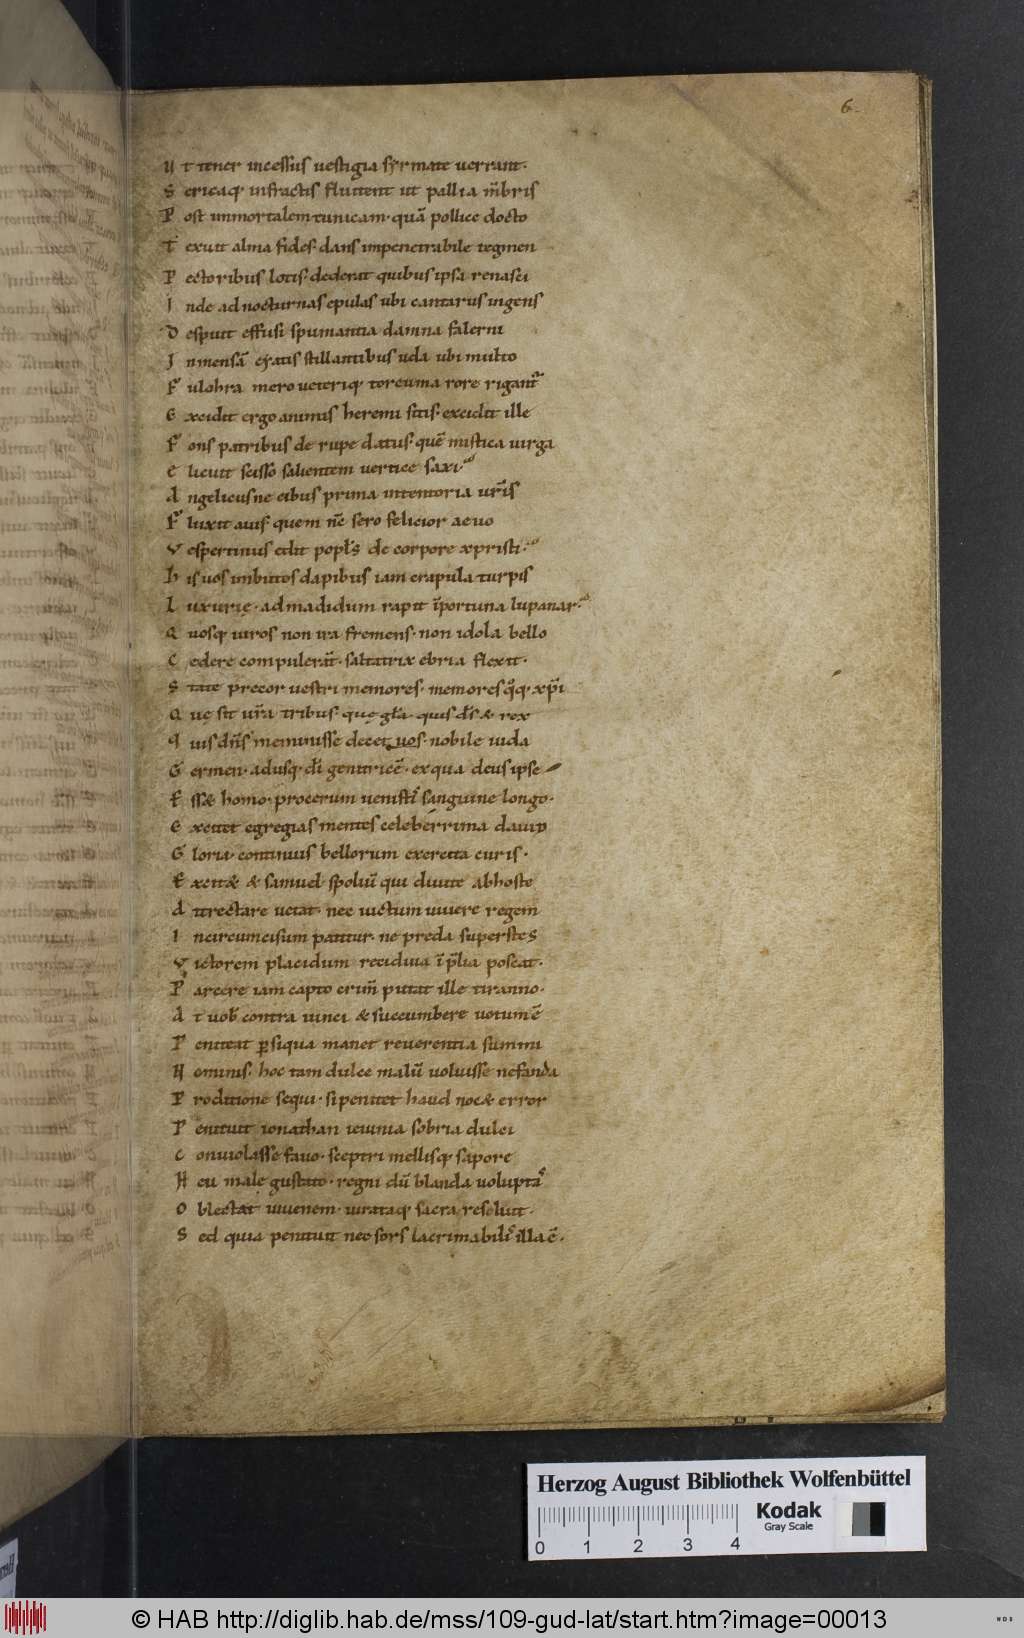 6.
Ut tener incessus uestigia syrmate uerrant.
Sericaq; infractis fluitent ut pallia mēbris
Post inmortalem tunicam. quā pollice docto
Texuit alma fides. dans impenetrabile tegmen
Pectoribus lotis. dederat quibus ipsa renasci
Inde ad nocturnas epulas ubi cantarus ingens
Despuit effusi spumantia damna falerni
Inmensā cyatis stillantibus uda ubi multo
Fulchra mero ueteriq; toreuma rore rigant
Excidit ergo animis heremi sitis. excidit ille
Fons patribus de rupe datus. quē mistica uirga
Elicuit scisso salientem uertice saxi.
Angelicusne cibus prima in tentoria ur̄is
Fluxit auis. quem nc̄ sero felicior aeuo
Vespertinus edit popl's de corpore xpristi.
his uos imbutos dapibus iam crapula turpis
Luxurię. ad madidum rapit īportuna lupanar.
Quosq; uiros non ira fremens. non idola bello
Cedere compulerāt. saltatrix ebria flexit.
State precor uestri memores. memores qq. xp̄i
Quę sit ur̄a tribus. quę gl̄a. quis ds̄ & rex
quis dn̄s meminisse decet uos. nobile iuda
Germen. adusq; dī genitricē. ex qua deus ipse
Ess& homo. procerum uenistis sanguine longo.
Excitet egregias mentes celeberrima dauid
Gloria. continuis bellorum exercita curis.
Excit& & samuel spoliū qui diuite ab hoste
dtrectare uetat. nec uictum uiuere regem
Incircumcisum patitur. ne preda superstes
Victorem placidum recidiua ī p̄lia poscat.
Parcere iam capto crim̄ putat ille tiranno.
At uob' contra uinci & succumbere uotum ē
Peniteat p siqua manet reuerentia summi
Nominis. hoc tam dulce malū uoluisse nefanda
Proditione sequi. si penitet haud noc& error
Penituit ionathan ieiunia sobria dulci
Conuiolasse fauo. sceptri mellisq; sapore
Heu male gustato. regni dū blanda uoluptas
Oblectat iuuenem. iurataq; sacra resoluit.
Sed quia penituit nec sors lacrimabilis illa ē.
Herzog August Bibliothek Wolfenbüttel
0 1 2 3 4
Kodak
Gray Scale
© HAB http://diglib.hab.de/mss/109-gud-lat/start.htm?image=00013